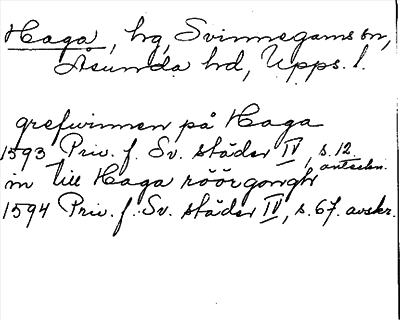 Haga, hg, Svinnegarns sn,
Åsunda hd, Upps. l.
grefwinnen på Haga
1593 Priv. f. Sv. städer IV, s. 12
anteckn.
in till Haga röörgongh
1594 Priv. f. Sv. städer IV, s. 67. avskr.